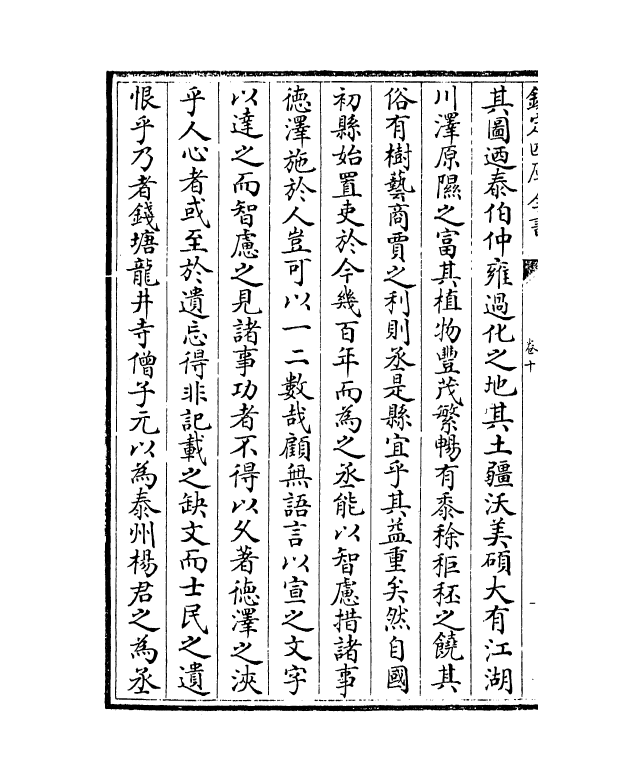 欽定四庫全書
卷十
其圖迺泰伯仲雍過化之地其土疆沃美碩大有江湖
川澤原隰之富其植物豐茂繁暢有黍稌秬秠之饒其
俗有樹藝商賈之利則丞是縣宜乎其益重矣然自國
初縣始置吏於今幾百年而為之丞能以智慮措諸事
徳澤施於人豈可以一二數哉顧無語言以宣之文字
以達之而智慮之見諸事功者不得以久著徳澤之浹
乎人心者或至於遺忘得非記載之缺文而士民之遺
恨乎乃者錢塘龍井寺僧子元以為泰州楊君之為丞